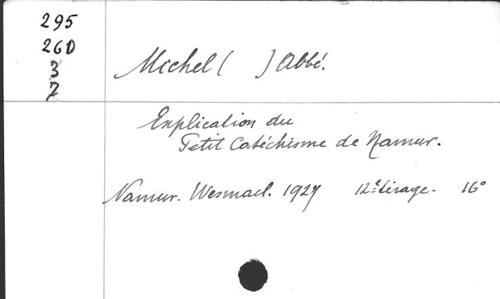 295
260
3
7
Michel ( ) Abbé.
Explication du
Petit Catéchisme de Namur.
Namur. Wesmael. 1927 12e tirage. 16°